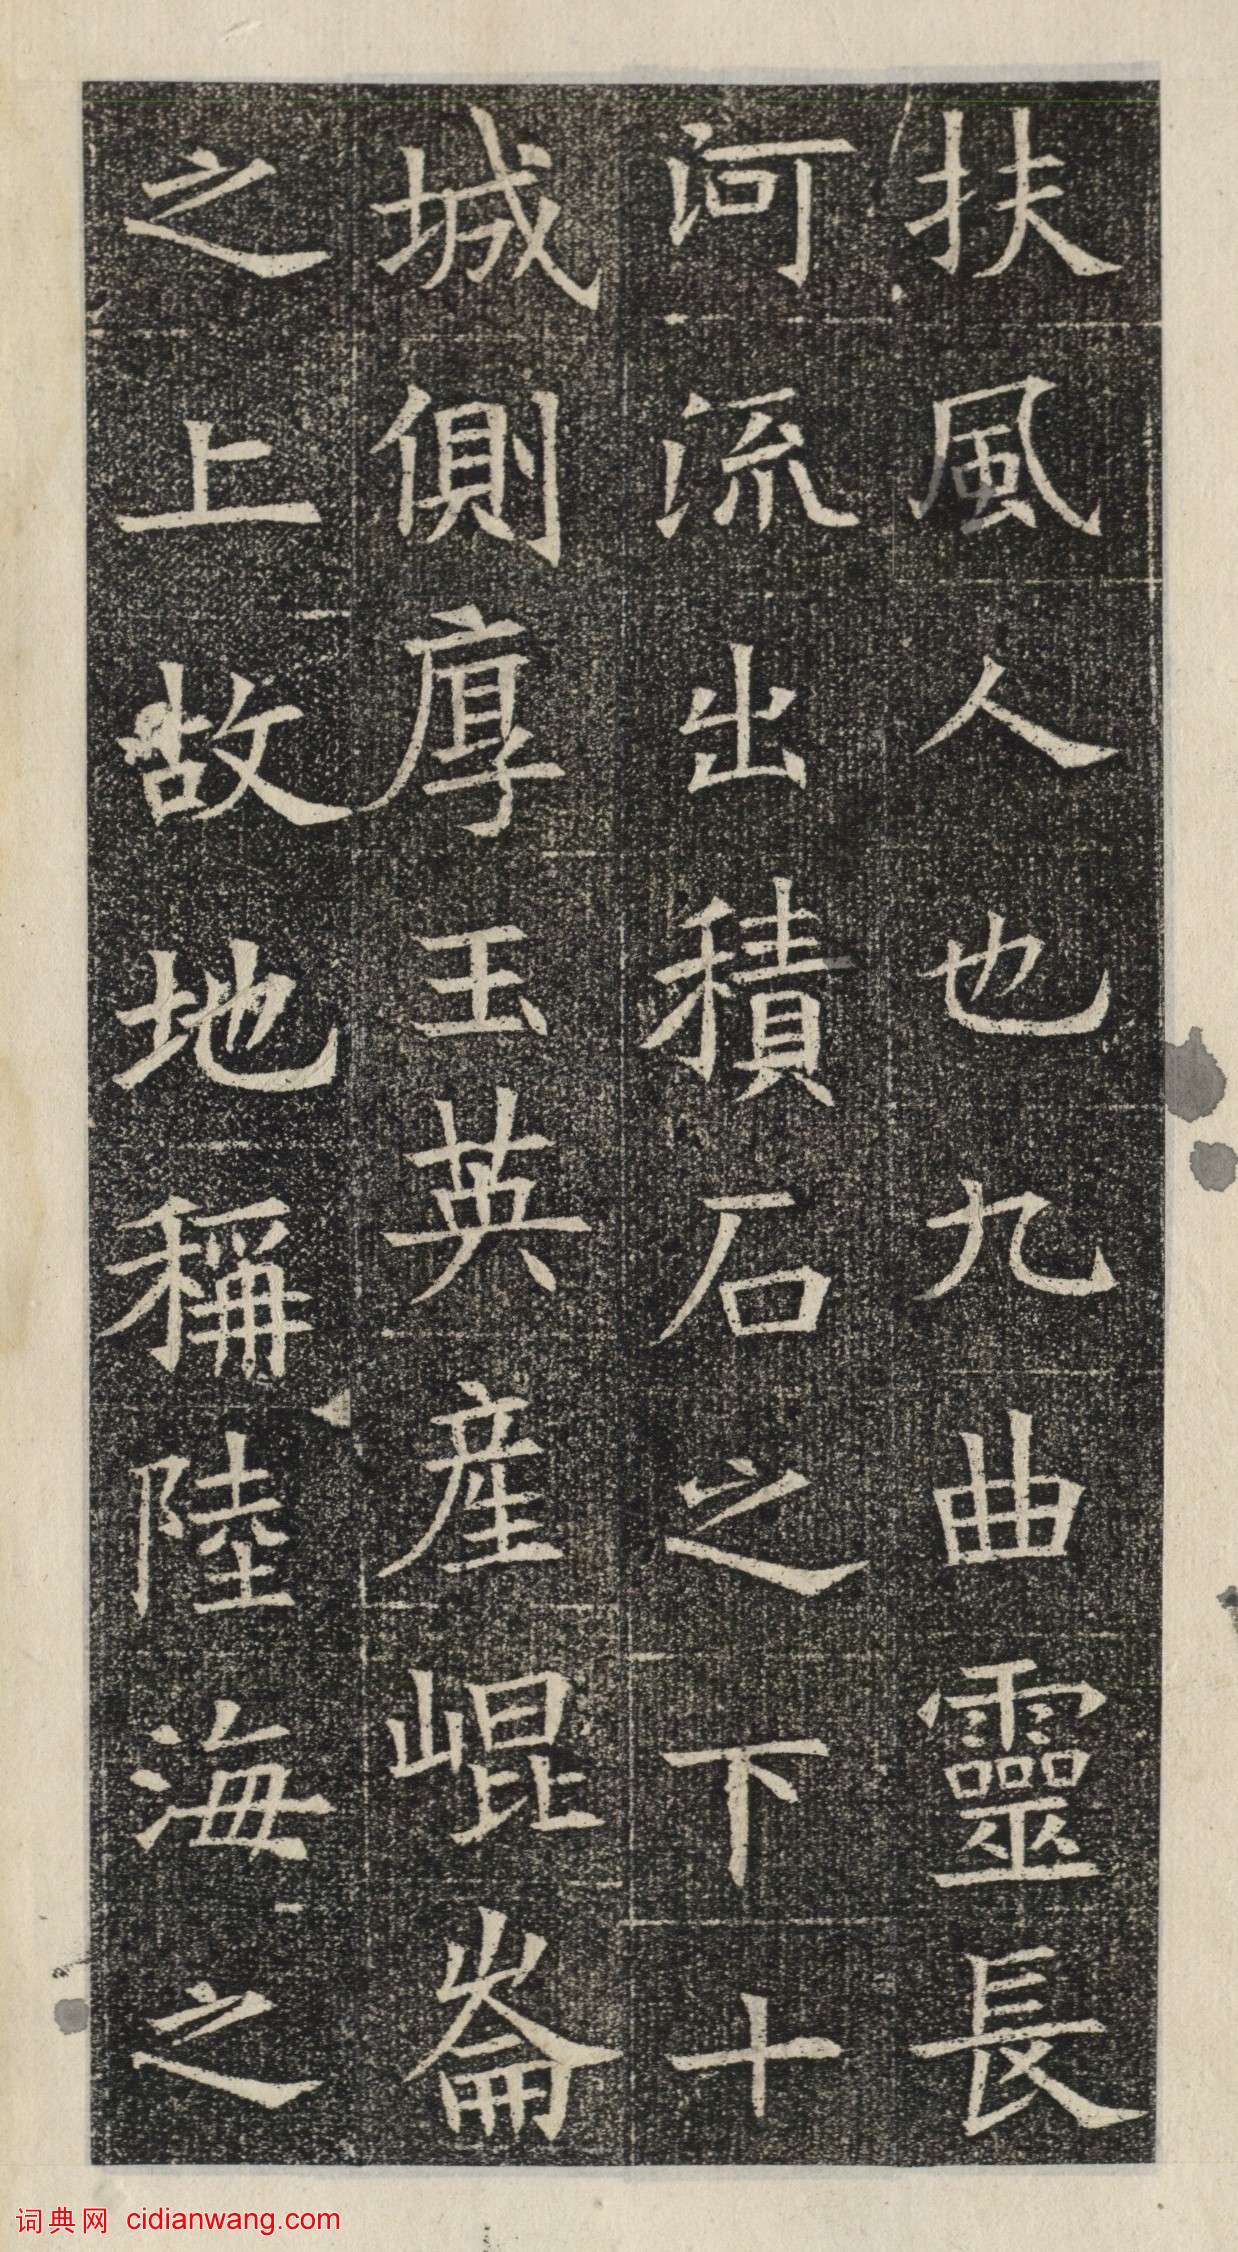 扶風人也九曲靈長
河流出積石之下十
城側厚玉英產崐崙
之上故地稱陸海之
词典网 cidianwang.com